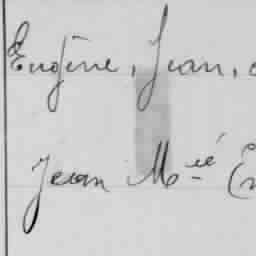 Eugène, Jean,
Jean M.ié